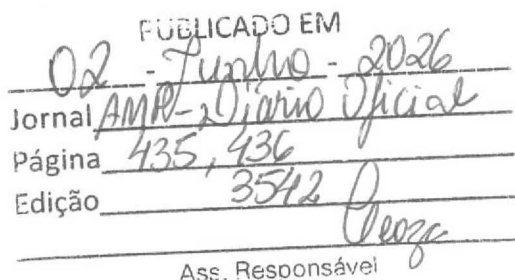 PUBLICADO EM
02 - Junho - 2026
Jornal AMP - Diário Oficial
Página 435, 436
Edição 3542
Ass. Responsável